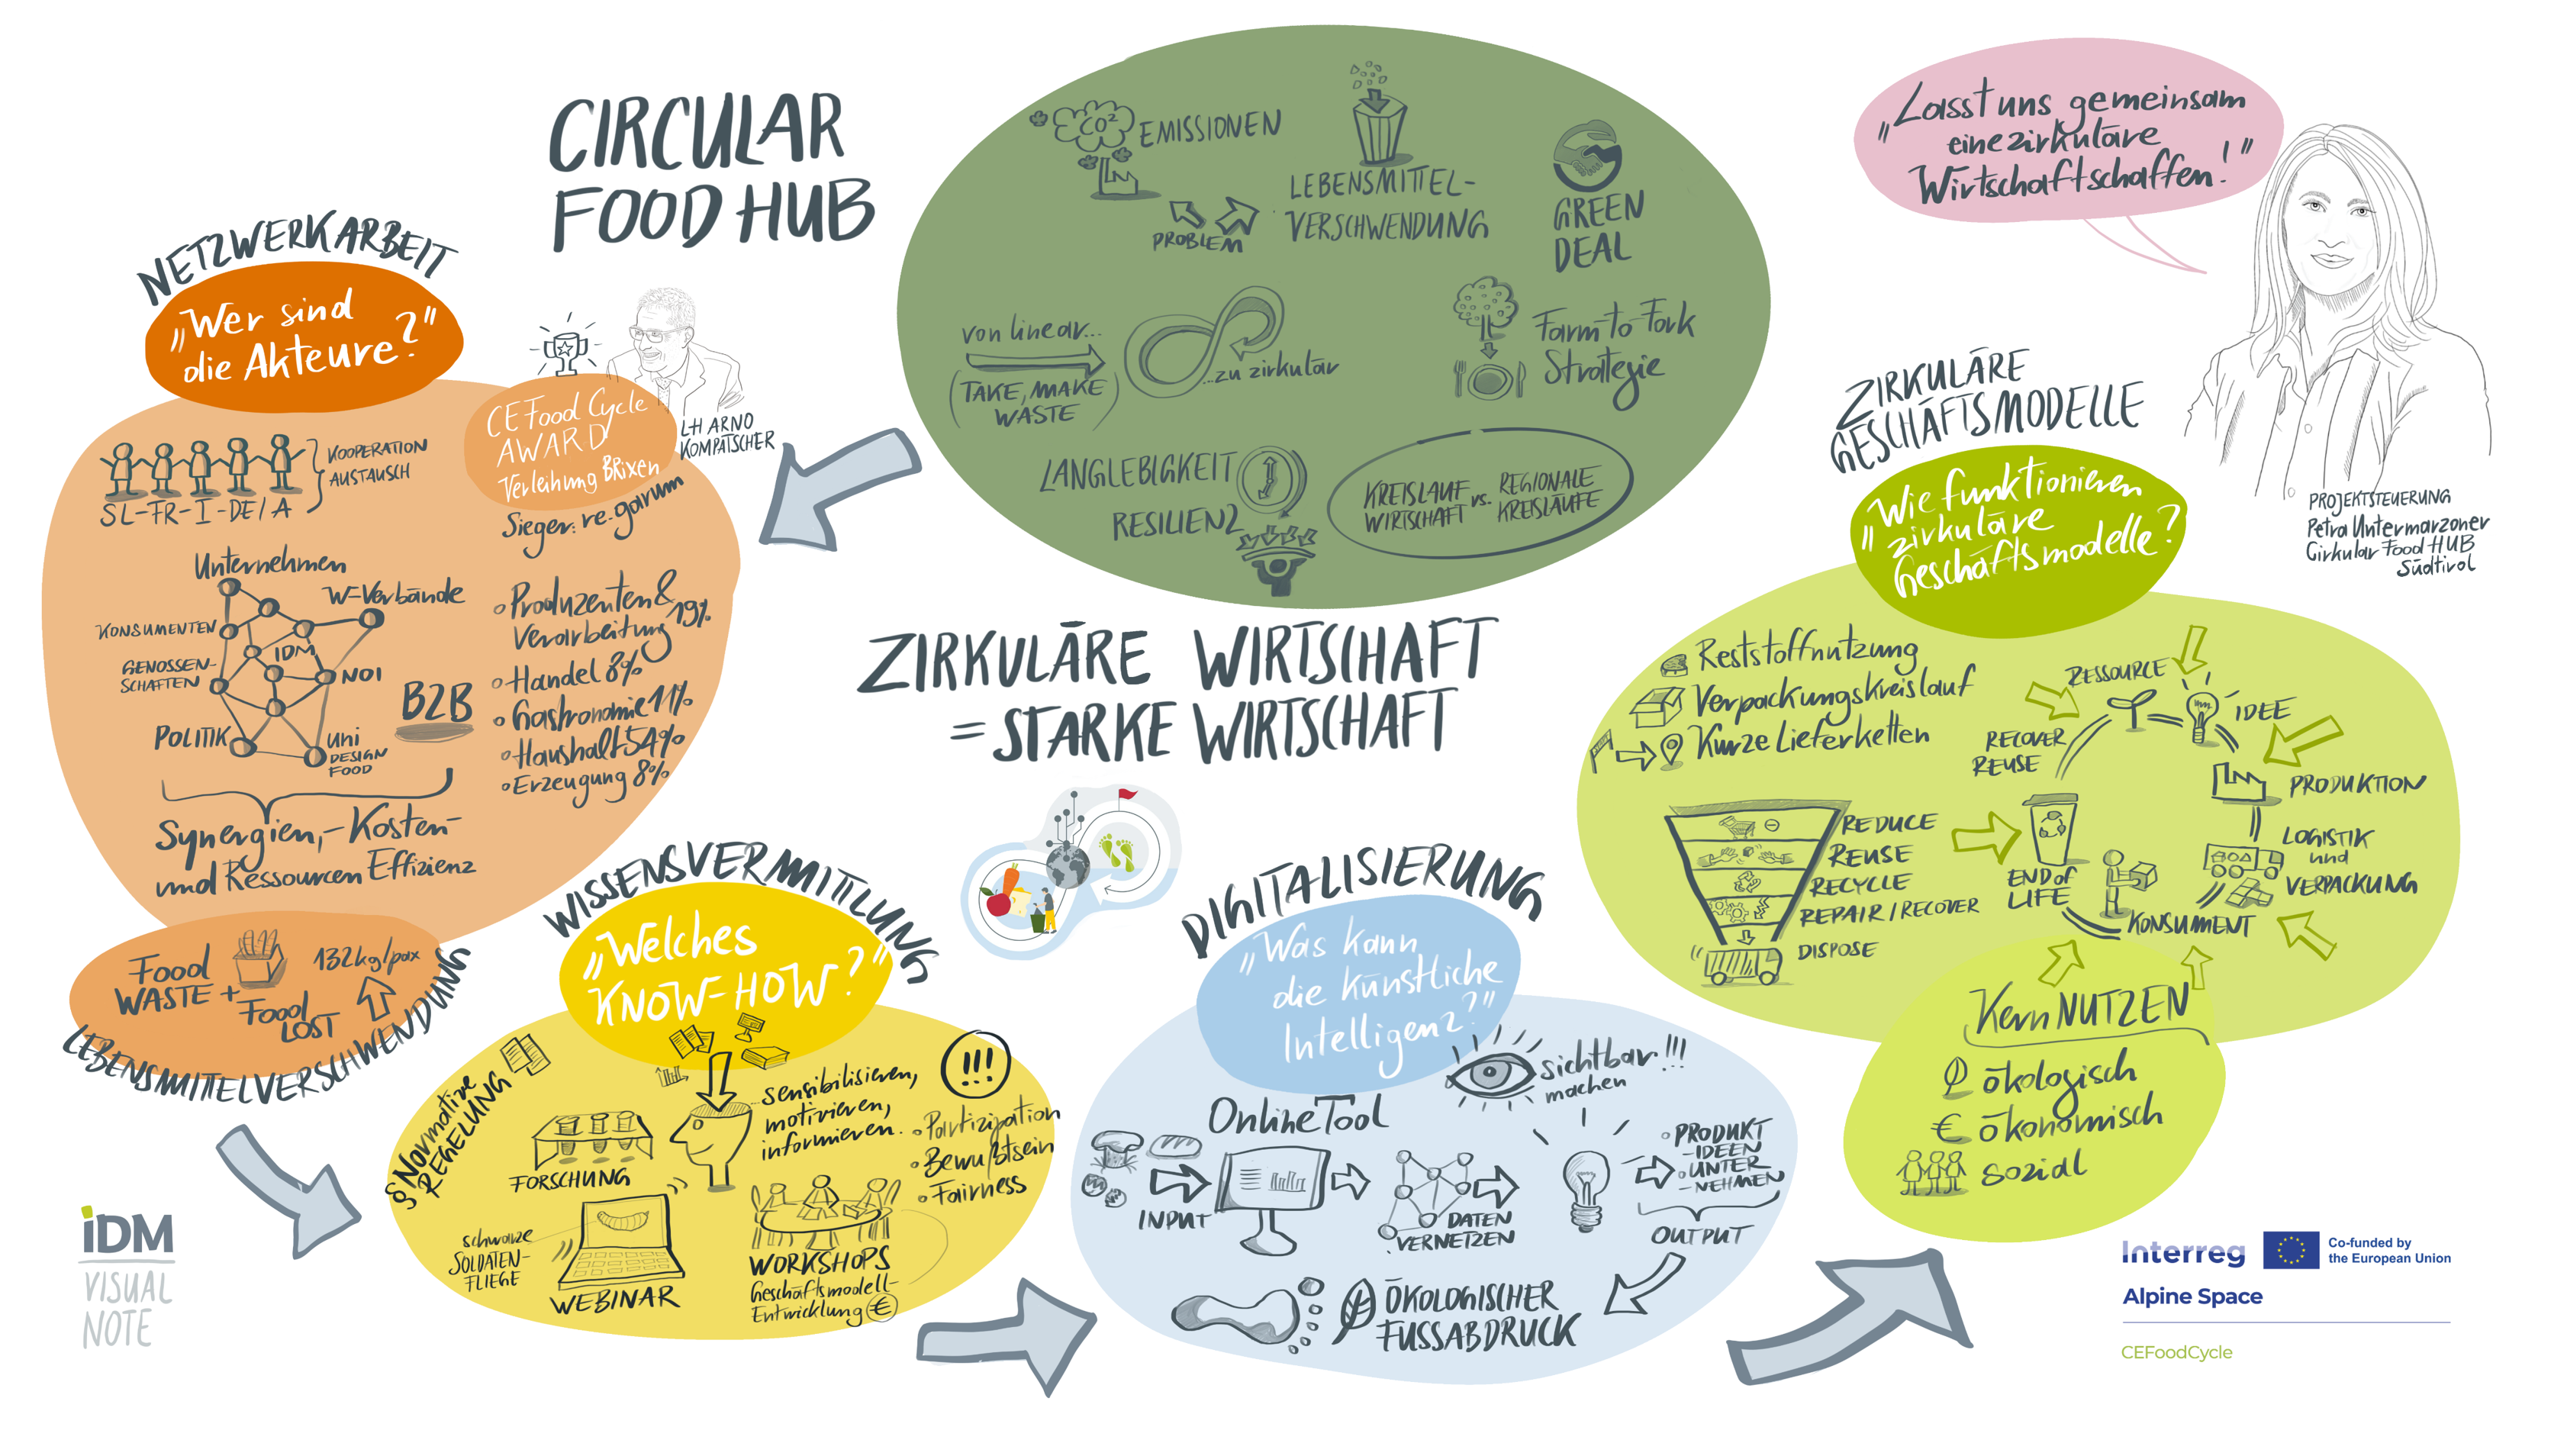 CIRCULAR
FOOD HUB
CO²
EMISSIONEN
PROBLEM
LEBENSMITTEL-
VERSCHWENDUNG
GREEN
DEAL
von linear...
(TAKE, MAKE
WASTE)
...zu zirkulär
Farm-to-Fork
Strategie
LANGLEBIGKEIT
RESILIENZ
KREISLAUF
WIRTSCHAFT
vs.
REGIONALE
KREISLÄUFE
ZIRKULÄRE WIRTSCHAFT
= STARKE WIRTSCHAFT
NETZWERKARBEIT
„Wer sind
die Akteure?"
CEFood Cycle
AWARD
Verleihung BRixen
LH ARNO
KOMPATSCHER
Sieger: re-garum
KOOPERATION
AUSTAUSCH
SL-FR-I-DE/A
Unternehmen
W-Verbände
KONSUMENTEN
IDM
GENOSSEN-
SCHAFTEN
NOI
POLITIK
uni
DESIGN
FOOD
B2B
Synergien,- Kosten-
und Ressourcen Effizienz
• Produzenten &
Verarbeitung 19%
• Handel 8%
• Gastronomie 11%
• Haushalt 54%
• Erzeugung 8%
Food
WASTE +
Food
LOST
132kg/pax
LEBENSMITTELVERSCHWENDUNG
WISSENSVERMITTLUNG
„Welches
KNOW-HOW?"
§ Normative
REGELUNG
FORSCHUNG
sensibilisieren,
motivieren,
informieren.
!!!
• Partizipation
• Bewußtsein
• Fairness
schwarze
SOLDATEN-
FLIEGE
WEBINAR
WORKSHOPS
Geschäftsmodell-
Entwicklung €
DIGITALISIERUNG
„Was kann
die künstliche
Intelligenz?"
sichtbar!!!
machen
OnlineTool
INPUT
DATEN
VERNETZEN
• PRODUKT
-IDEEN
• UNTER
-NEHMEN
OUTPUT
ÖKOLOGISCHER
FUSSABDRUCK
ZIRKULÄRE
GESCHÄFTSMODELLE
„Wie funktionieren
zirkuläre
Geschäftsmodelle?
Reststoffnutzung
Verpackungskreislauf
Kurze Lieferketten
REDUCE
REUSE
RECYCLE
REPAIR/RECOVER
DISPOSE
RESSOURCE
IDEE
PRODUKTION
LOGISTIK
und
VERPACKUNG
KONSUMENT
END of
LIFE
RECOVER
REUSE
Kern NUTZEN
ökologisch
€ ökonomisch
sozial
„Lasst uns gemeinsam
eine zirkuläre
Wirtschaft schaffen!"
PROJEKTSTEUERUNG
Petra Untermarzoner
Cirkular Food HUB
Südtirol
iDM
VISUAL
NOTE
Interreg
Co-funded by
the European Union
Alpine Space
CEFoodCycle